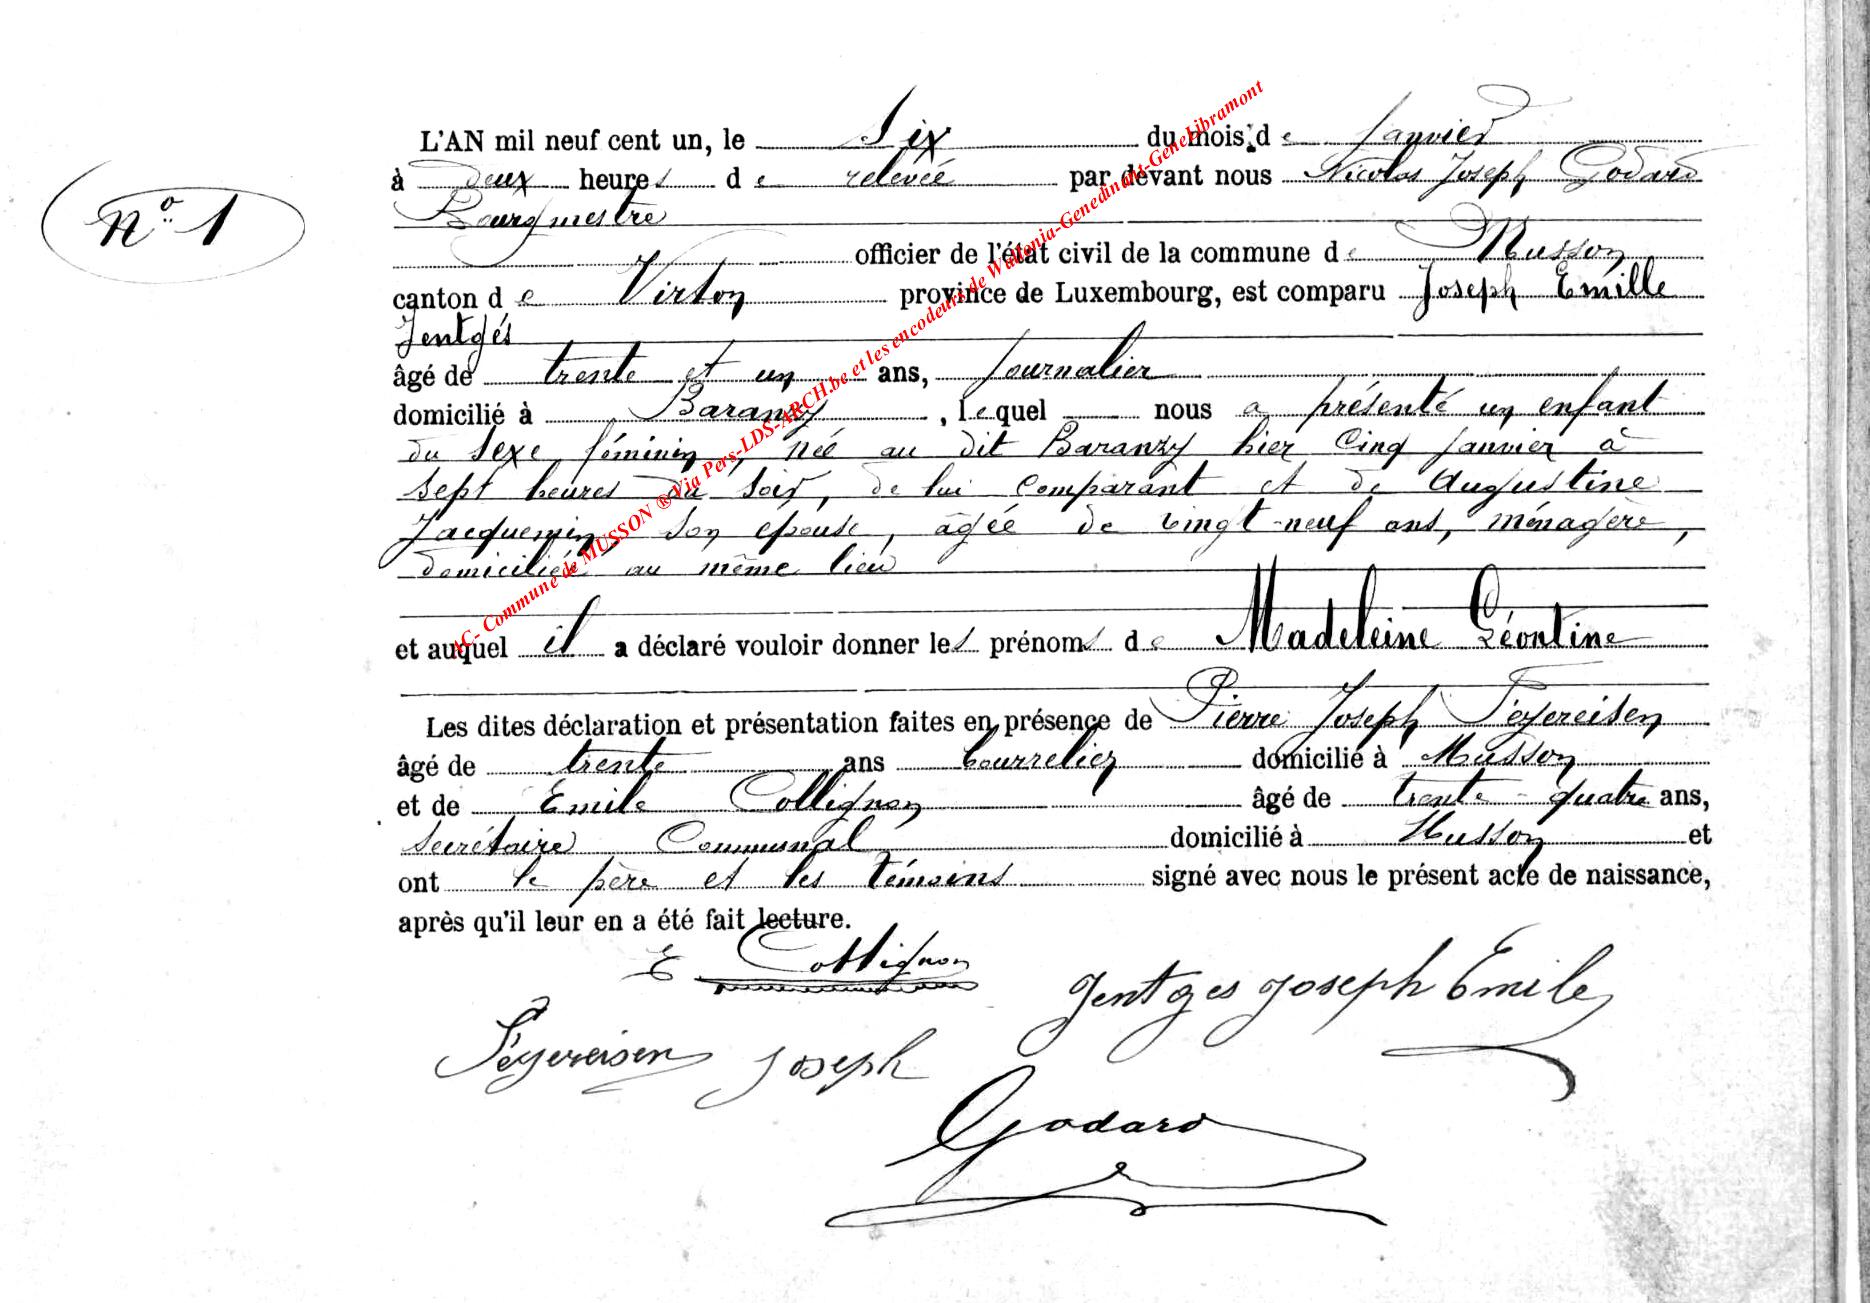 N° 1
L'AN mil neuf cent un, le Six du mois de Janvier
à deux heures de relevée par devant nous Nicolas Joseph Godard
Bourgmestre
officier de l'état civil de la commune de Musson
canton de Virton province de Luxembourg, est comparu Joseph Emille
Jentgés
âgé de trente et un ans, Journalier
domicilié à Baranzy, lequel nous a présenté un enfant
du sexe féminin, née au dit Baranzy hier Cinq Janvier à
sept heures du soir, de lui comparant et de Augustine
Jacquemin, son épouse, âgée de vingt-neuf ans, ménagère,
domiciliée au même lieu
et auquel il a déclaré vouloir donner les prénoms de Madeleine Léontine
Les dites déclaration et présentation faites en présence de Pierre Joseph Feyereisen
âgé de trente ans bourrelier domicilié à Musson
et de Emile Collignon âgé de trente-quatre ans,
secrétaire Communal domicilié à Musson et
ont le père et les témoins signé avec nous le présent acte de naissance,
après qu'il leur en a été fait lecture.
E Collignon
Jentges Joseph Emile
Feyereisen Joseph
Godard
AC- Commune de MUSSON ® Via Pers-LDS-ARCH.be et les encodeurs de Wallonia-Genedinant-GeneLibramont